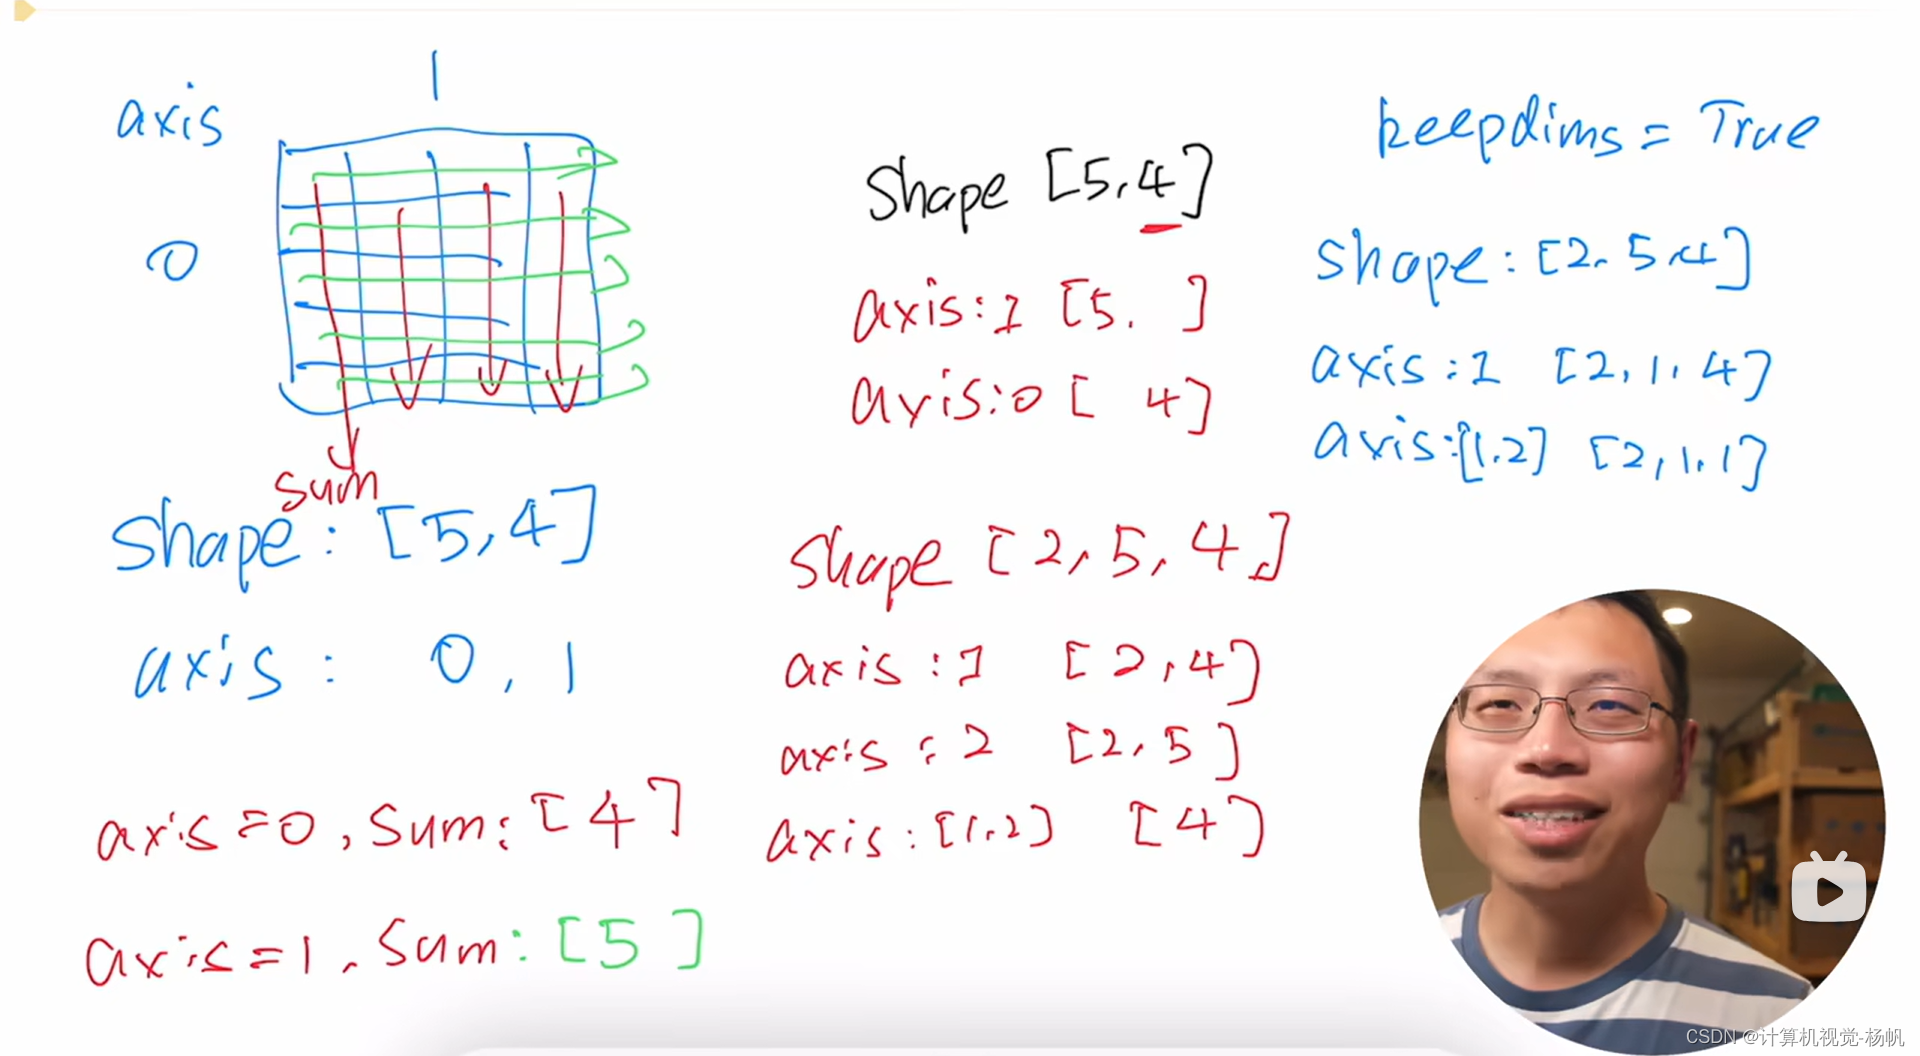 axis
1
0
sum
shape: [5,4]
axis: 0, 1
axis=0, sum: [4]
axis=1, sum: [5]
Shape [5,4]
axis:1 [5, ]
axis:0 [ 4]
shape [2,5,4,]
axis:1 [2,4]
axis:2 [2,5]
axis:[1,2] [4]
keepdims=True
shape: [2,5,4]
axis:1 [2,1,4]
axis:[1,2] [2,1,1]
CSDN @计算机视觉-杨帆